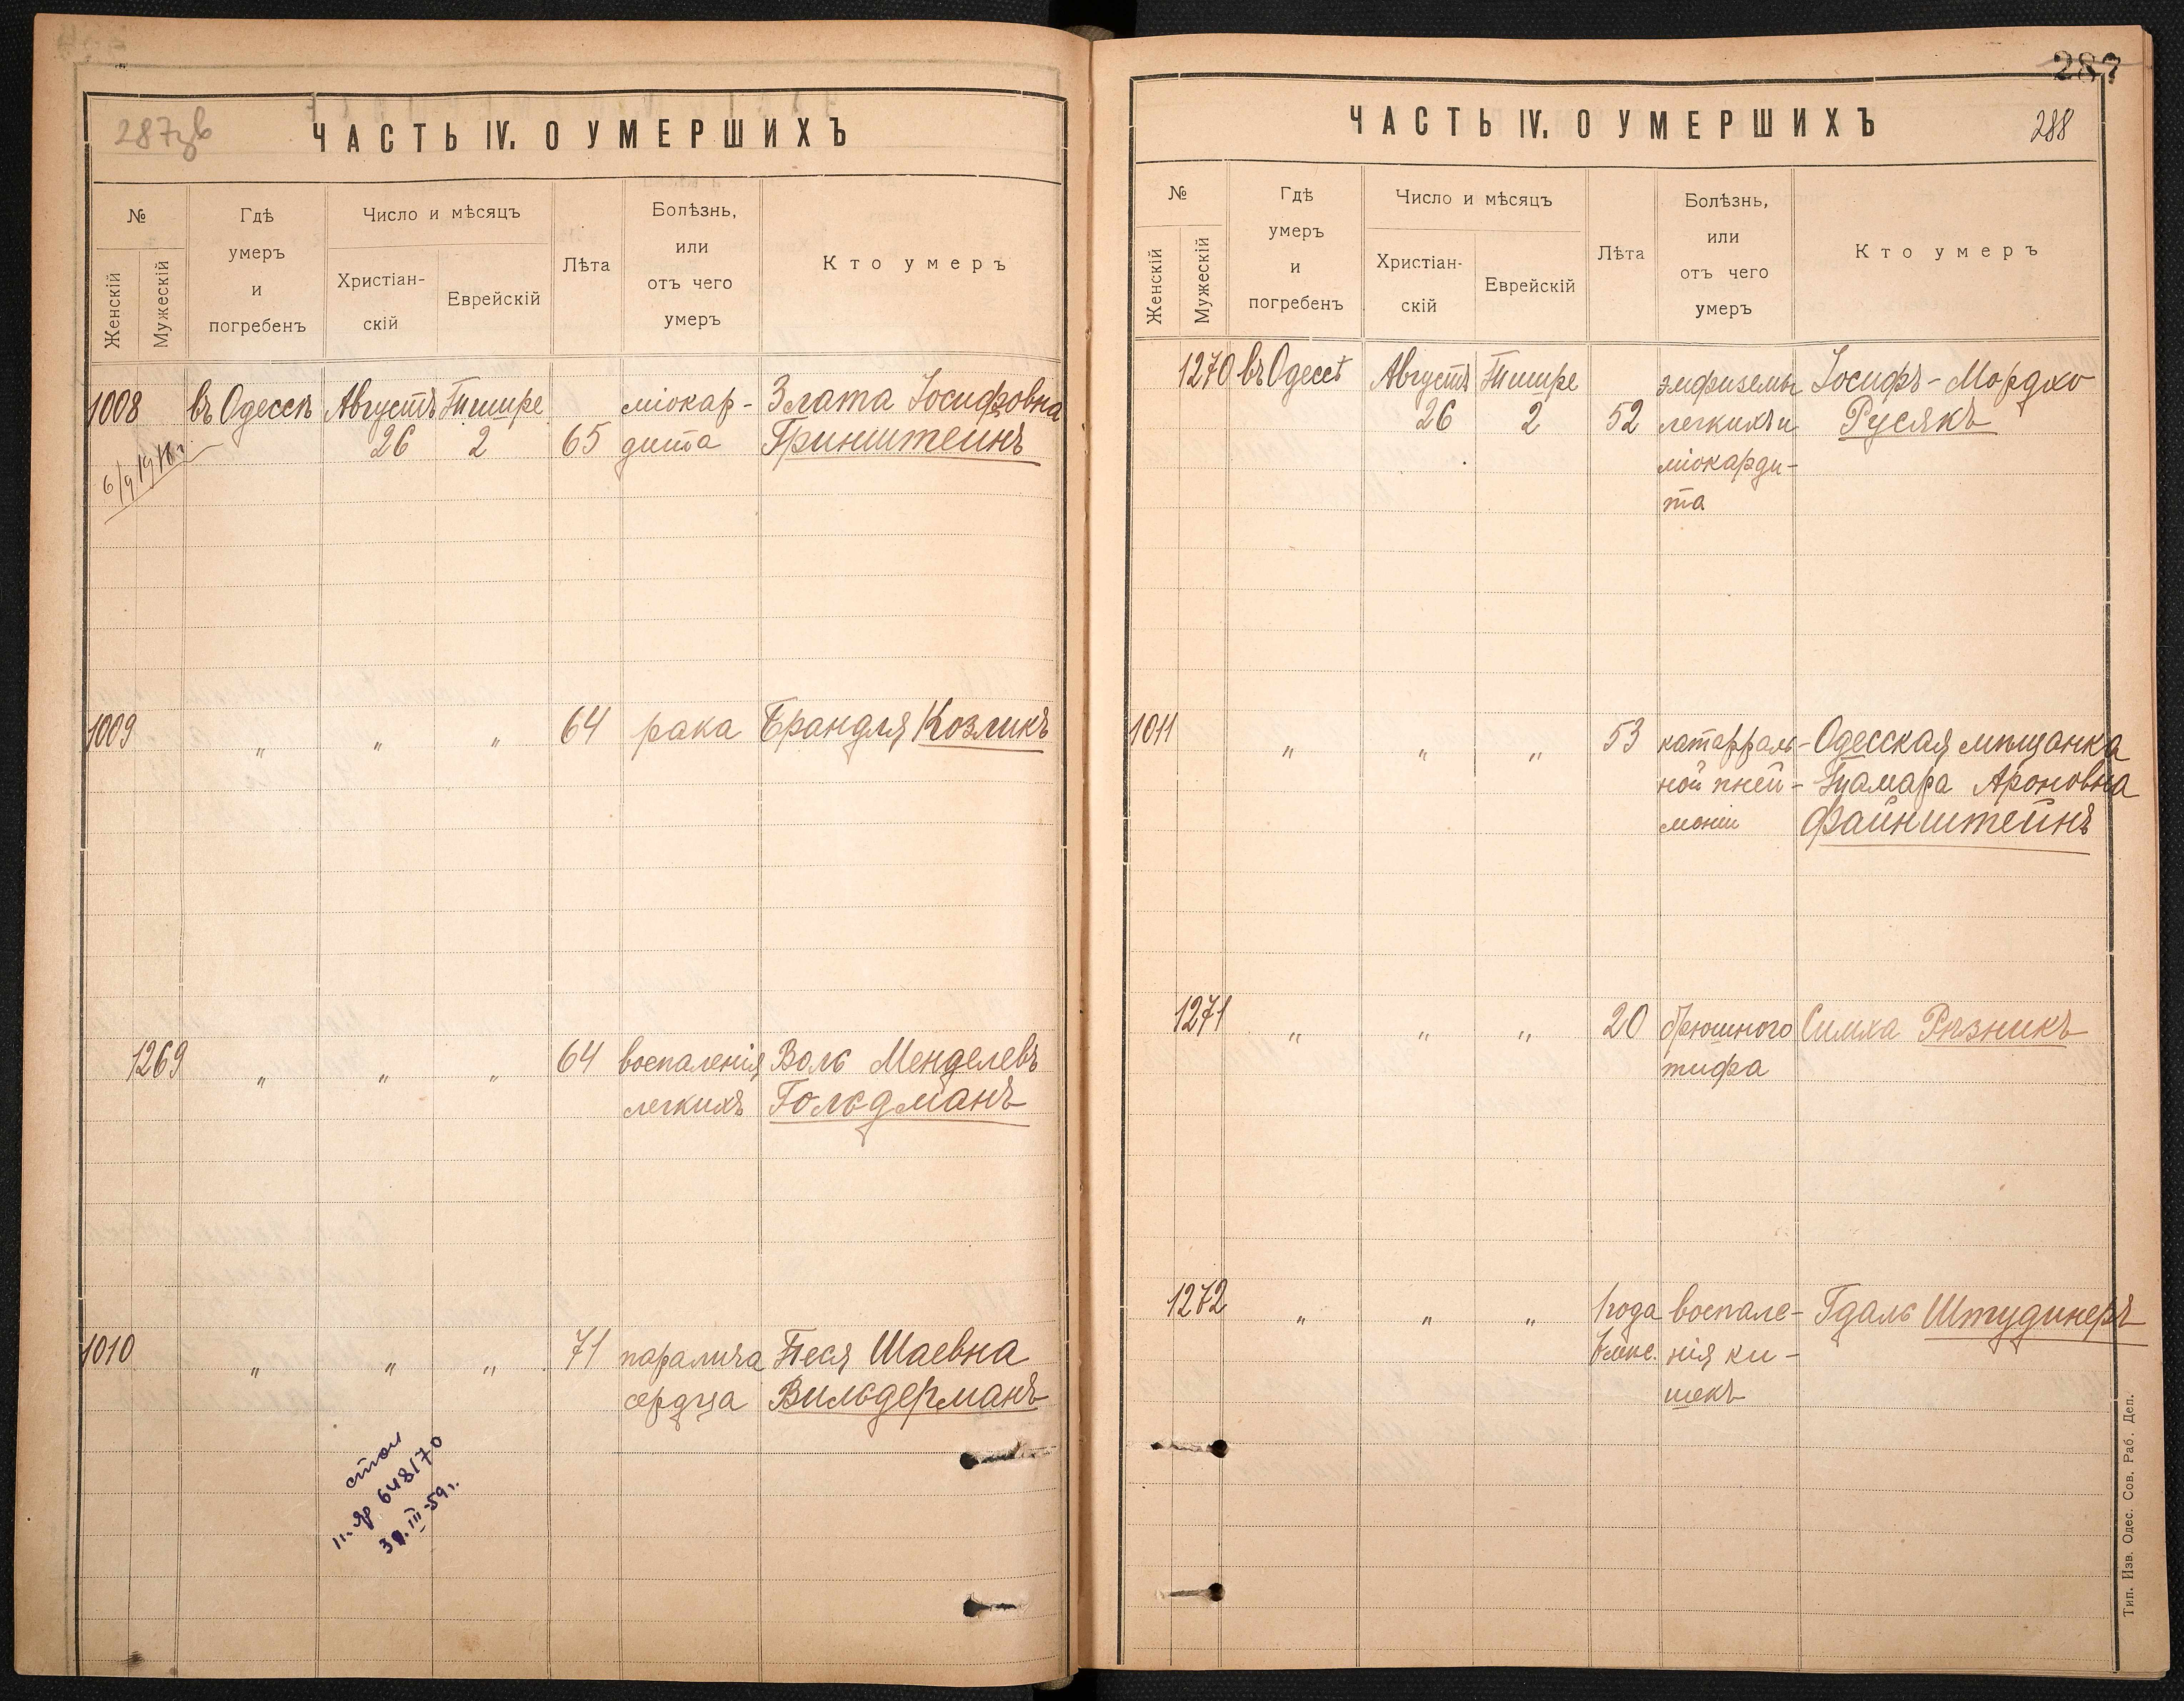 287зв
ЧАСТЬ IV. О УМЕРШИХЪ
№
Женскій
Мужескій
Гдѣ
умеръ
и
погребенъ
Число и мѣсяцъ
Христіан-
скій
Еврейскій
Лѣта
Болѣзнь,
или
отъ чего
умеръ
Кто умеръ
1008 въ Одессѣ Августъ Тишре міокар- Злата Іосифовна
26 2 65 дита Гринштейнъ
6/9 1918 г.
1009 " " " 64 рака Брандля Козликъ
1269 " " " 64 воспаленія Волъ Менделевъ
легкихъ Гольдманъ
1010 " " " 71 паралича Песя Шаевна
сердца Вильдерманъ
648170
III-59г.
287
ЧАСТЬ IV. О УМЕРШИХЪ
288
№
Женскій
Мужескій
Гдѣ
умеръ
и
погребенъ
Число и мѣсяцъ
Христіан-
скій
Еврейскій
Лѣта
Болѣзнь,
или
отъ чего
умеръ
Кто умеръ
1270 въ Одессѣ Августъ Тишре эмфиземы Іосифъ-Мордко
26 2 52 легкихъ и Русякъ
міокарди-
та
1011 " " " 53 катарраль- Одесская мѣщанка
ной пней- Тамара Ароновна
моніи Файнштейнъ
1271 " " " 20 брюшного Симха Рѣзникъ
тифа
1272 " " " 1 года воспале- Гдаль Штудинеръ
нія ки-
шекъ
Тип. Изв. Одес. Сов. Раб. Деп.